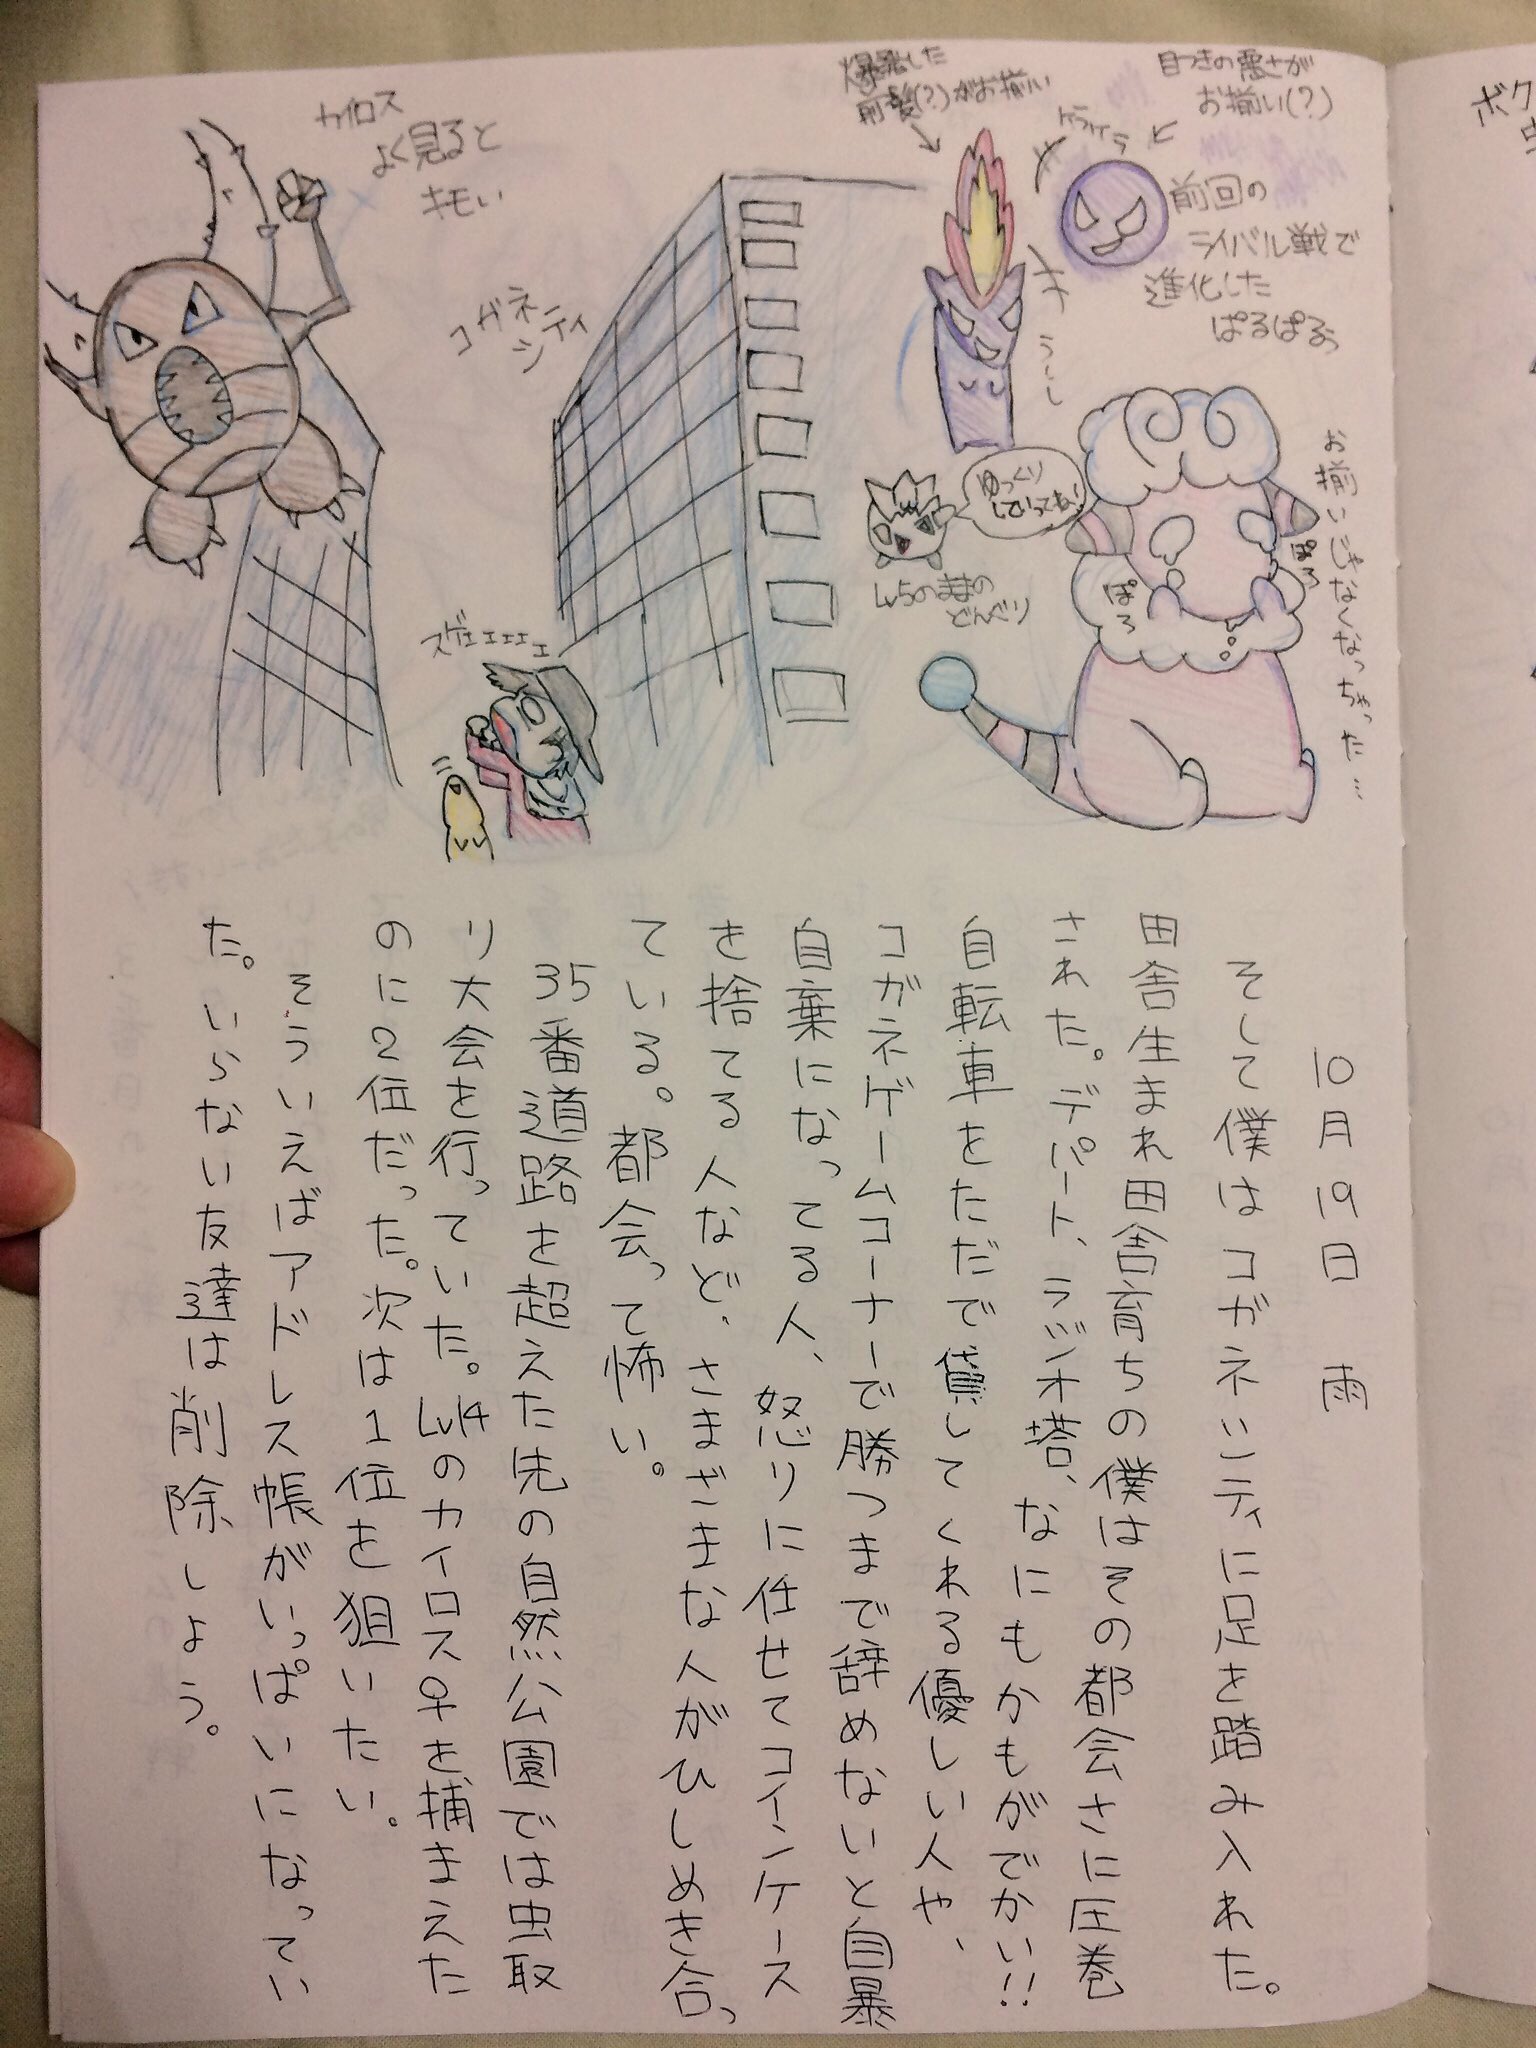 カイロス
よく見ると
キモい
コガネ
シティ
スゲェェェェ
爆発した
前髪(?)がお揃い
目つきの悪さが
お揃い(?)
ケラケラ
前回の
ライバル戦で
進化した
ぱるぱるぅ
ゆっくり
していってね!
Lv5のままの
どんべり
ぽろ
ぽろ
お揃いじゃなくなっちゃった…
10月19日 雨
そして僕はコガネシティに足を踏み入れた。
田舎生まれ田舎育ちの僕はその都会さに圧巻
された。デパート、ラジオ塔、なにもかもがでかい!!
自転車をただで貸してくれる優しい人や、
コガネゲームコーナーで勝つまで辞めないと自暴
自棄になってる人、怒りに任せてコインケース
を捨てる人など、さまざまな人がひしめき合っ
ている。都会って怖い。
35番道路を超えた先の自然公園では虫取
り大会を行っていた。Lv14のカイロス♀を捕まえた
のに2位だった。次は1位を狙いたい。
そういえばアドレス帳がいっぱいになってい
た。いらない友達は削除しよう。
ボク